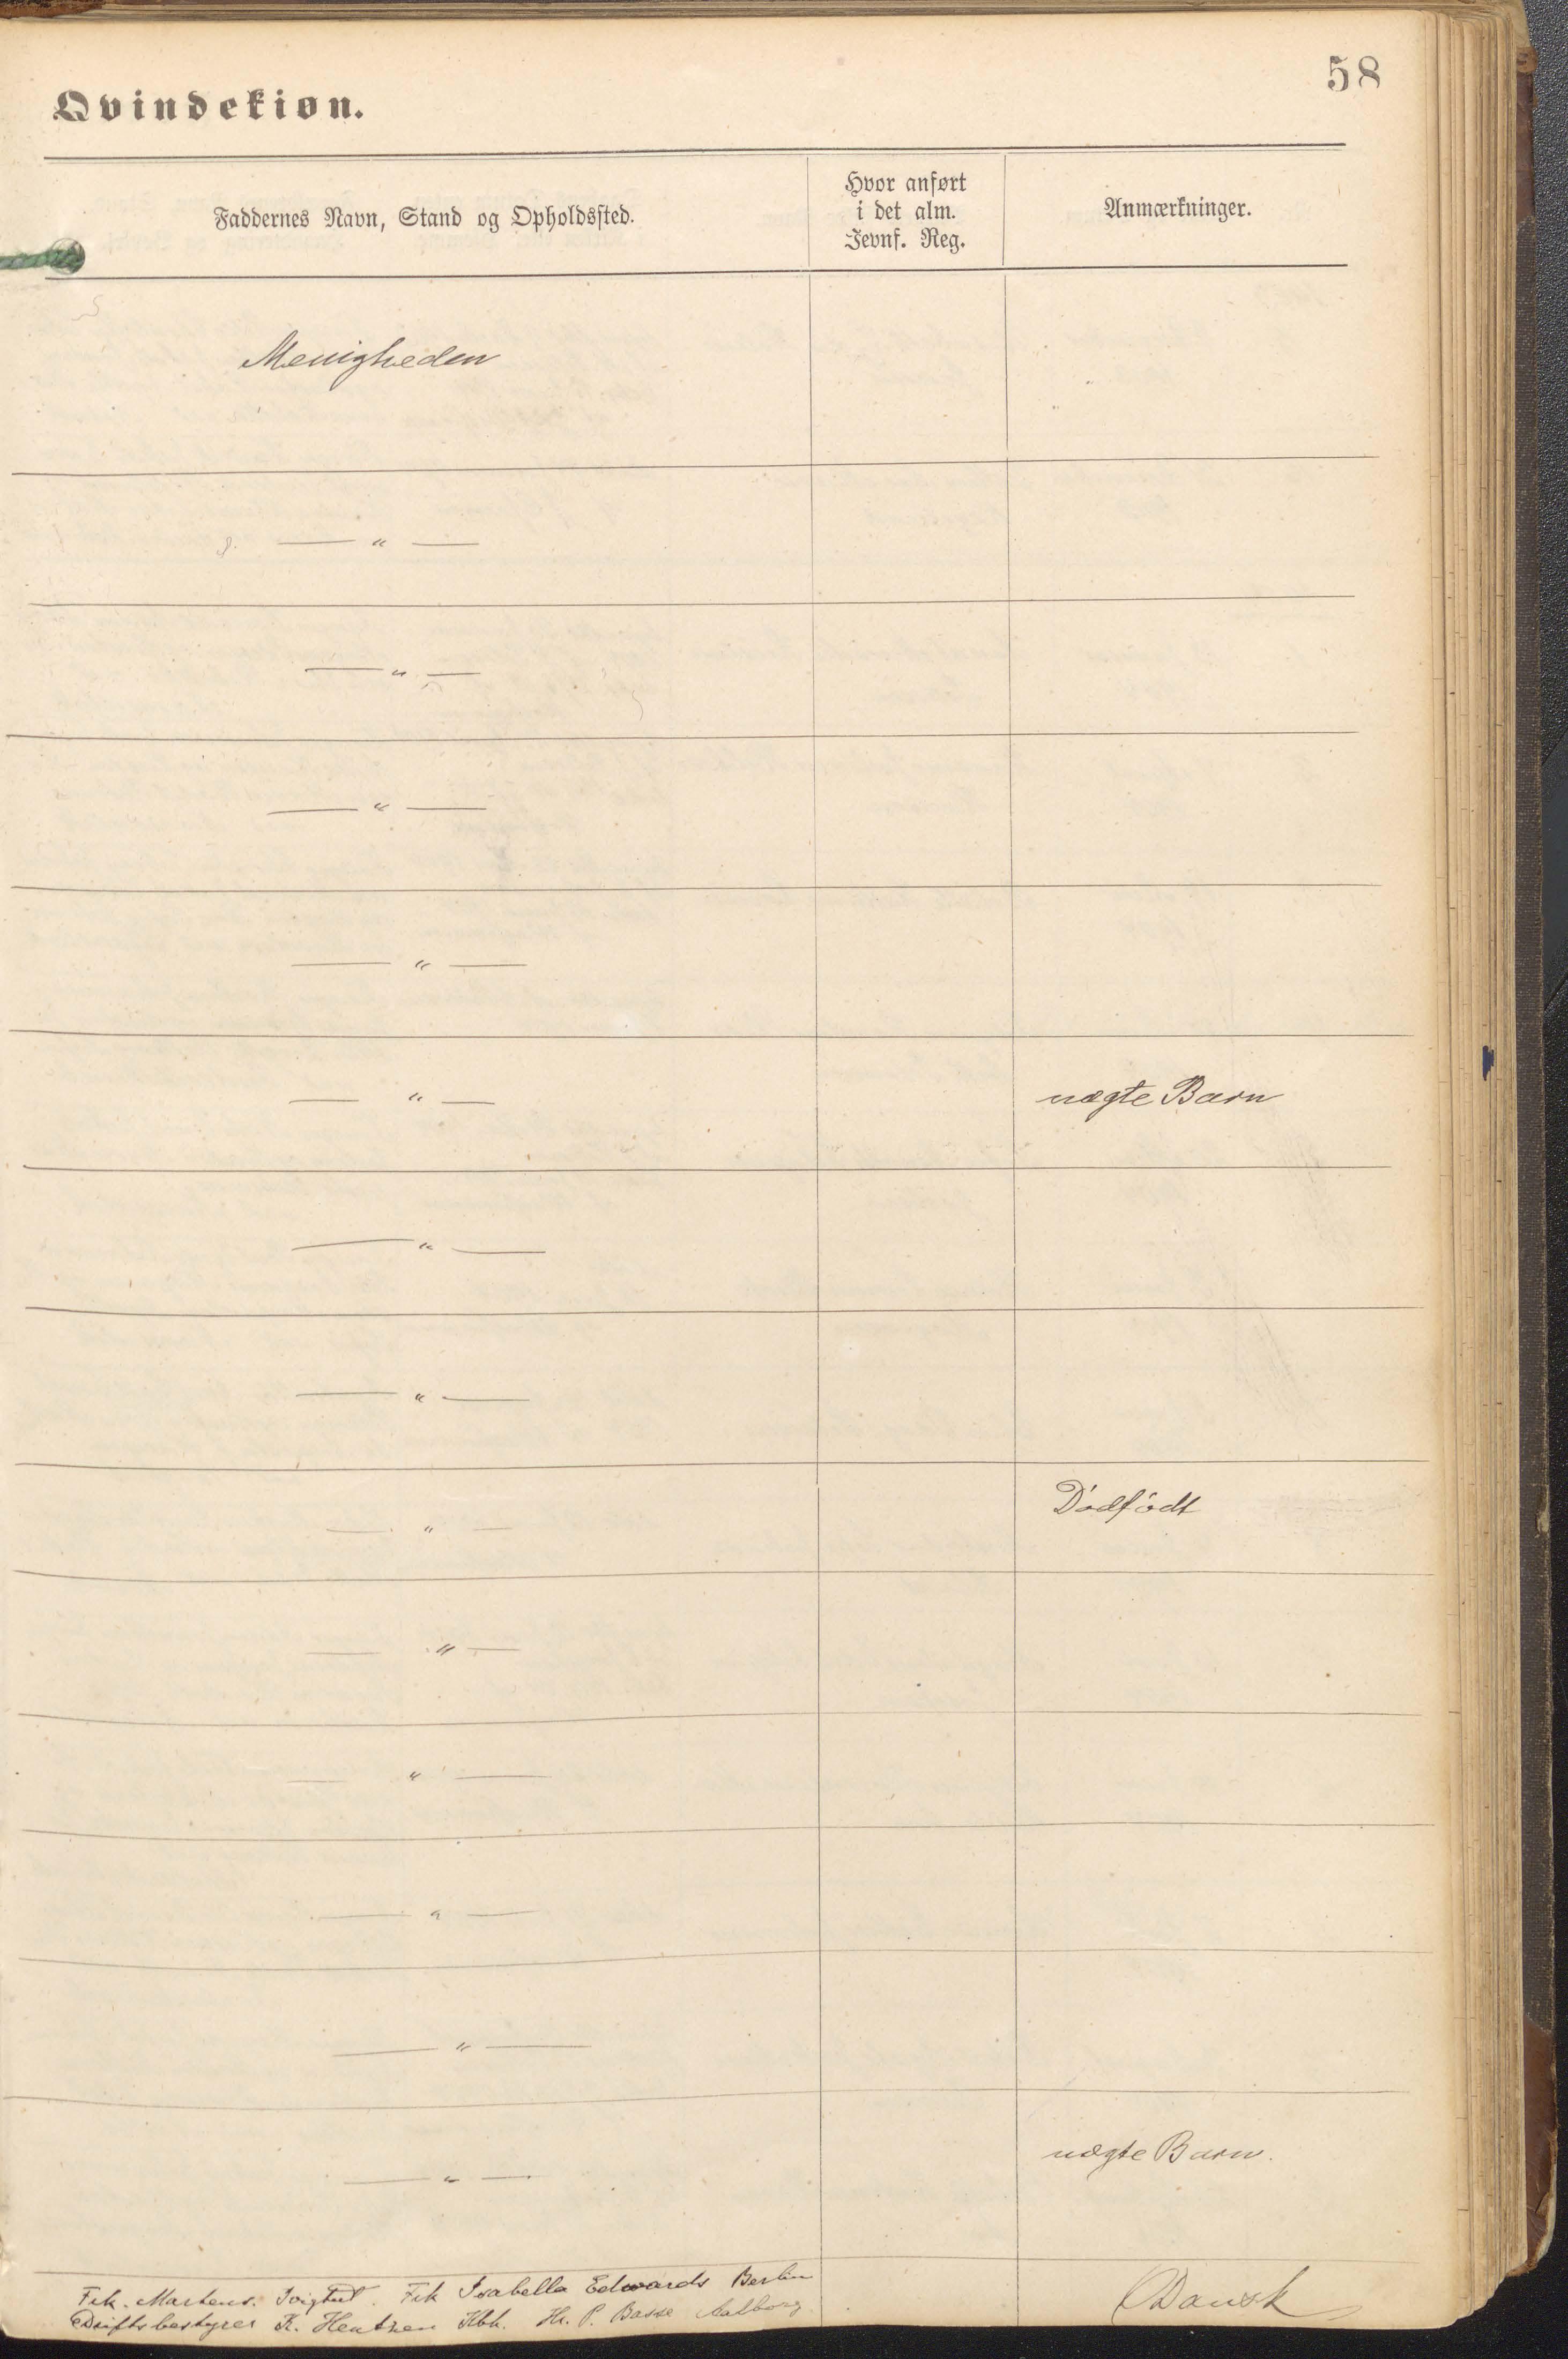 58
Qvindekiøn.
Faddernes Navn, Stand og Opholdssted.
Hvor anført
i det alm.
Jevnf. Reg.
Anmærkninger.
Menigheden
— " —
— " —
— " —
— " —
— " — uægte Barn
— " —
— " —
Dødfødt
— " —
— " —
— " —
— " —
— " —
uægte Barn.
— " —
Frk. Martens. Ivigtut. Frk Isabella Edwards Berlin
Driftsbestyrer K. Hentzen Kbh. Hr. P. Basse Aalborg
Dansk